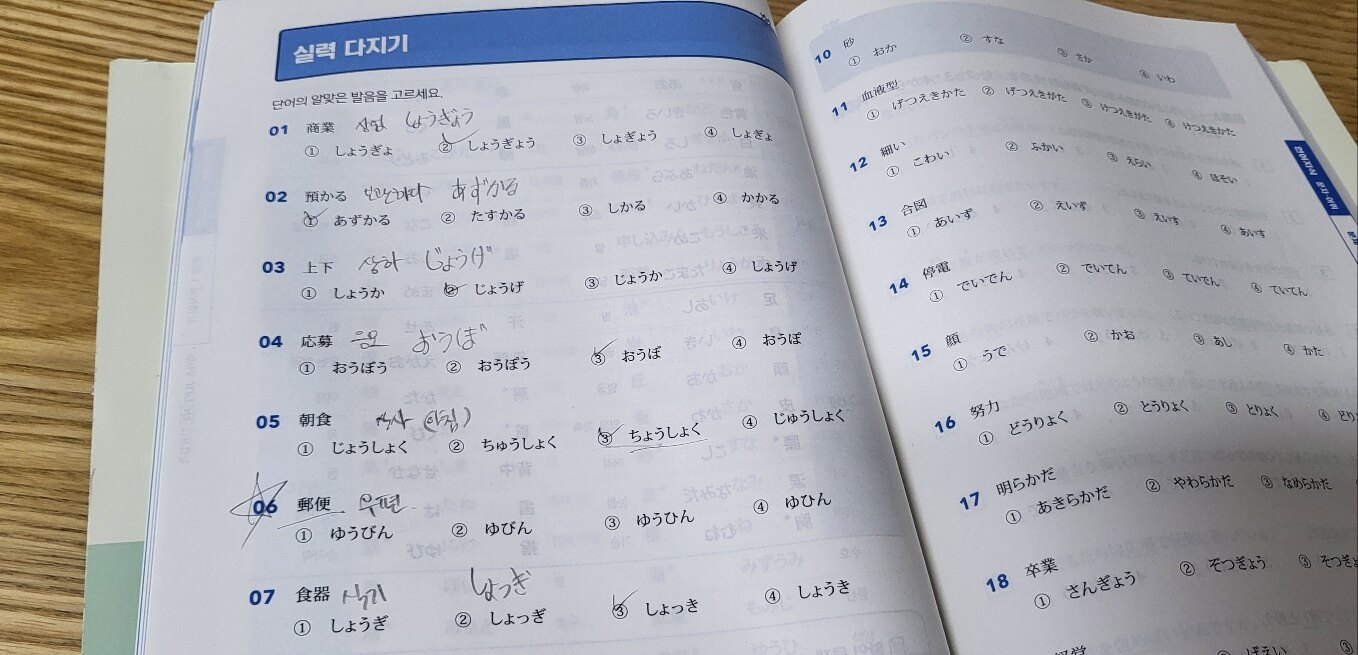 실력 다지기
단어의 알맞은 발음을 고르세요.
01 商業 상업 しょうぎょう
① しょうぎょ ② しょうぎょう ③ しょぎょう ④ しょぎょ
02 預かる 보관하다 あずかる
① あずかる ② たすかる ③ しかる ④ かかる
03 上下 상하 じょうげ
① しょうか ② じょうげ ③ じょうか ④ しょうげ
04 応募 응모 おうぼ
① おうぼう ② おうぽう ③ おうぼ ④ おうぽ
05 朝食 (아침)
① じょうしょく ② ちゅうしょく ③ ちょうしょく ④ じゅうしょく
06 郵便 우편
① ゆうびん ② ゆびん ③ ゆうひん ④ ゆひん
07 食器 식기 しょっき
① しょうぎ ② しょっぎ ③ しょっき ④ しょうき
10 砂
① おか ② すな ③ さか ④ いわ
11 血液型
① げつえきかた ② げつえきがた ③ けつえきがた ④ けつえきかた
12 細い
① こわい ② ふかい ③ えらい ④ ほそい
13 合図
① あいず ② えいず ③ えいす ④ あいす
14 停電
① でいでん ② でいてん ③ ていでん ④ ていてん
15 顔
① うで ② かお ③ あし ④ かた
16 努力
① どうりょく ② とうりょく ③ とりょく ④
17 明らかだ
① あきらかだ ② やわらかだ ③ なめらかだ
18 卒業
① さんぎょう ② そつぎょう ③